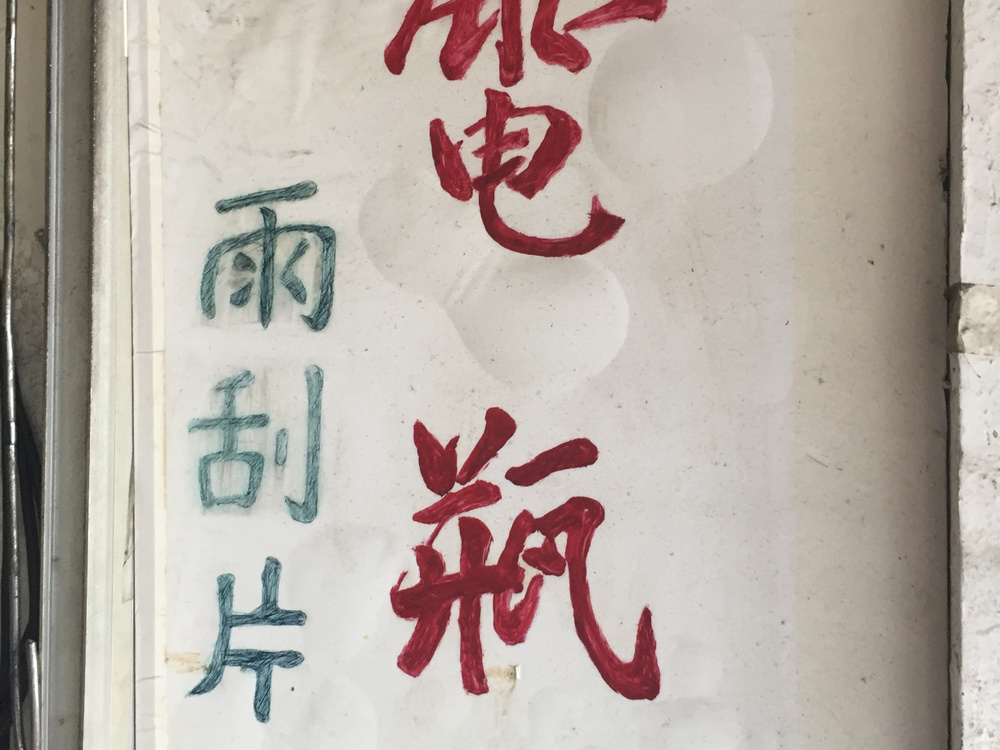 电瓶
雨刮片